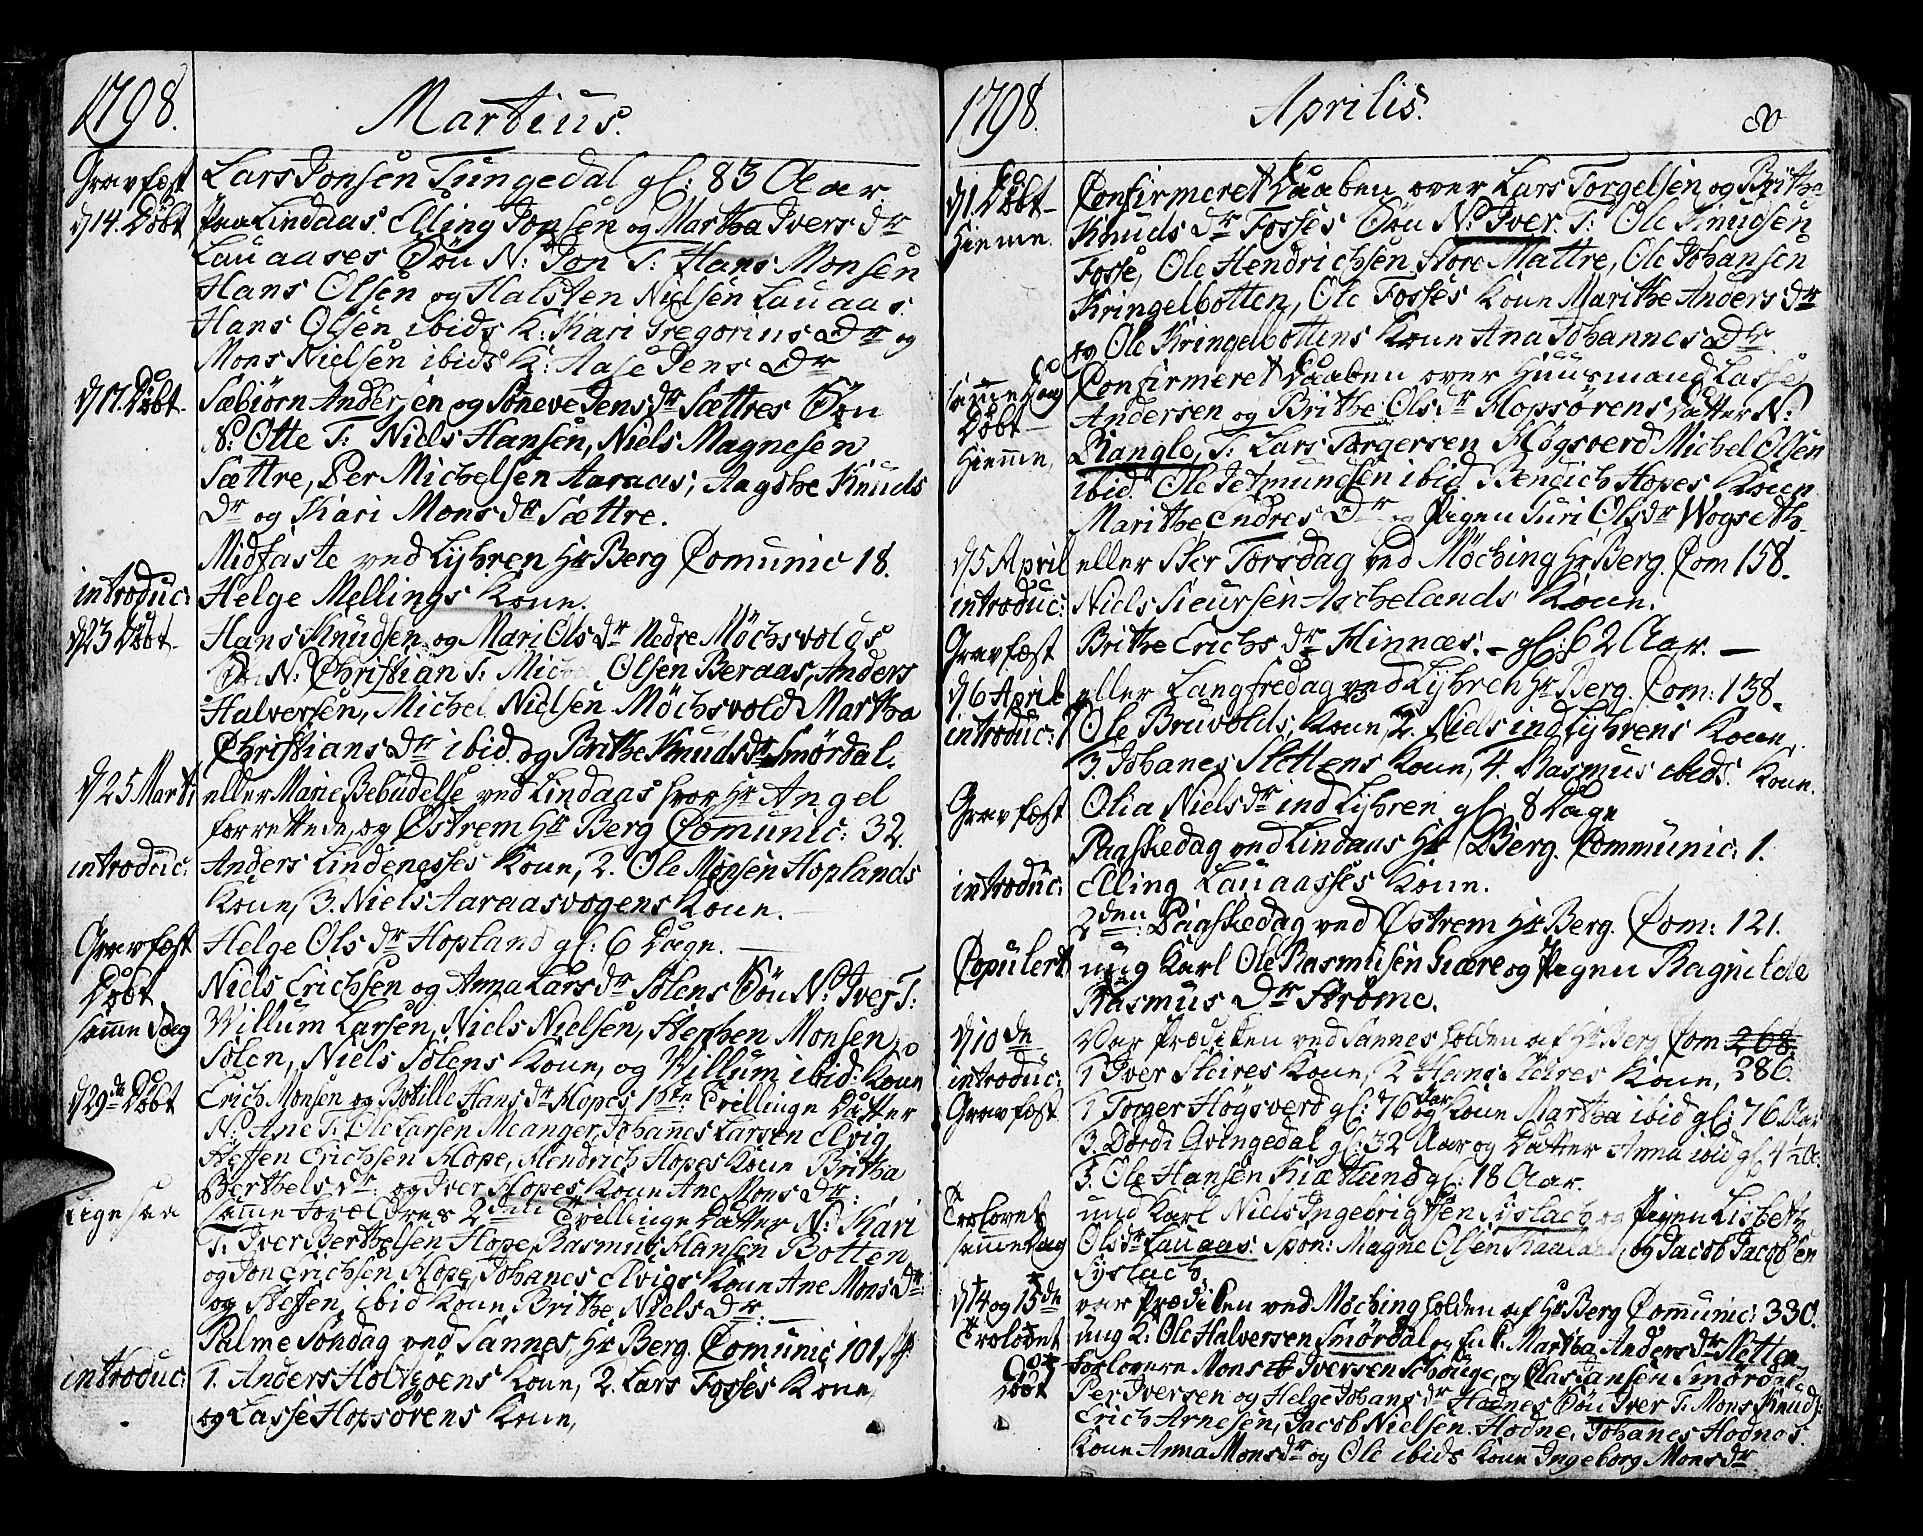 1798. Martius.
Gravfæst Lars Jonsen Tungedal gl: 83 Aar.
d 14. Døbt paa Lindaas. Elling Jonsen og Martha Ivers dr
Lauaases Søn N: Jon T: Hans Monsen
Hans Olsen og Halsten Nielsen Lauaas.
Hans Olsen ibids K: Kari Gregorius Dr og
Mons Nielsen ibids K: Aase Jens Dr
d 17. Døbt Sæbiørn Andersen og Søneve Jens dr Sættres Søn
N: Otte T: Niels Hansen, Niels Magnesen
Sættre, Per Michelsen Aaraas, Aagthe Knuds
Dr og Kari Mons dr Sættre.
Midfaste ved Lyhren Hr Berg Comunic 18.
introduc: Helge Mellings Kone.
d 23 Døbt Hans Knudsen og Mari Ols dr Nedre Möchsvolds
Søn N: Christian T: Olsen Beraas, Anders
Halversen, Michel Nielsen Möchsvold Martha
Christians Dr ibid. og Brithe Knuds dr Smördal.
d 25 Marti eller Marie Bebudelse ved Lindaas hvor Hr Angel
forrettede, og Østrem Hr Berg Comunic: 32.
introduc: Anders Lindenesses Kone, 2. Ole Monsen Hoplands
Kone, 3. Niels Aaraasvogens Kone.
Gravfæst Helge Ols dr Hopland gl: 6 Dage.
Døbt Niels Erichsen og Anna Lars dr Solens Søn N: Iver T:
samme Dag Willum Larsen, Niels Nielsen, Stephen Monsen
Solen, Niels Solens Kone, og Willum ibid: Kone
d 29de Døbt Erich Monsen og Botille Hans dr Hopes 1ste Tvillinge Datter
N: Ane T: Ole Larsen Meanger, Johannes Larsen Elvig,
Steffen Erichsen Hope, Hendrich Hopes Kone Britha
Berthels dr: og Iver Hopes Kone Ane Mons Dr:
Ligesaa samme Forældres 2den Tvillinge Datter N: Kari
T: Iver Berthelsen Hope, Rasmus Hansen Botten,
og Jon Erichsen Hope, Johanes Elvigs Kone Ane Mons Dr
og Steffen ibid Kone Brithe Niels Dr:
Palme Søndag ved Sannes, Hr Berg. Comunic 101 st:
introduc: 1. Anders Holtzoens Kone, 2. Lars Fosses Kone,
og Lasse Hopsörens Kone,
1798. Aprilis. 80
d 1. Døbt Confirmeret Daaben over Lars Torgelsen og Brithe
Hiemme. Knuds Dr Fosses Søn N: Iver. T: Ole Knudsen
Fosse, Ole Hendrichsen Store Mattre, Ole Johansen
Kringelbotten, Ole Fosses Kone Marithe Anders dr
og Ole Kringelbottens Kone Ana Johannes Dr.
samme Dag Confirmeret Daaben over Huusmand Lasse
Døbt Andersen og Brithe Ols dr Hopsörens Datter N:
Hiemme, Ranglo, T: Lars Torgersen Högsverd Michel Olsen
ibid. Ole Jetmundsen ibid Bendich Hopes Kone
Marithe Endres Dr og Pigen Turi Ols dr Wogseth
d 5 April eller Skr Torsdag ved Möching Hr Berg. Com 158.
introduc: Niels Sieursen Aschelands Kone.
Gravfæst Brithe Erichs dr Hinnæs. gl: 62 Aar.
d 6 April eller Langfredag ved Lyhren Hr Berg. Com: 138.
introduc: 1 Ole Bruvolds, Kone, 2. Niels ind Lyhrens Kone,
3. Johanes Slettens Kone, 4. Rasmus ibids. Kone.
Gravfæst Olia Niels dr ind Lyhren gl: 8 Dage
Paaskedag ved Lindaas Hr Berg. Communic: 1.
introduc: Elling Lauaasses Kone.
2den: Paaskedag ved Østrem Hr Berg. Com: 121.
Copulert ung Karl Ole Rasmusen Giære og Pigen Ragnilde
Rasmus Dr Strøme.
d 10de var Prædiken ved Sannes holden af Hr Berg Com 268
introduc: 1 Iver Steires Kone, 2 Hans Steires Kone, 286.
Gravfæst 1 Torger Högsverd gl: 76 Aar og Kone Martha ibid gl: 76 Aar
3. Dordi Qvingedal gl: 32 Aar og Datter Anna ibid gl: 4 1/2 A:
5. Ole Hansen Kiætlund gl: 18 Aar.
Trolovet und Karl Niels Ingebrigtsen Syslach og Pigen Lisbeth
samme Dag Ols dr Lauaas. Spon: Magne Olsen og Jacob Jacobsen
Syslach.
d 14 og 15de var Prædiken ved Möching holden af Hr Berg Comunic: 330.
Trolovet ung K: Ole Halversen Smördal og Enk: Martha Anders dr Netten
forlovere Mons Iversen og Smördal
Døbt Per Iversen og Helge Johans dr Hodnes Søn Iver T: Mons Knuds:
Erich Arnesen, Jacob Nielsen Hodne, Johanes Hodnes
Kone Anna Mons dr og Ole ibids Kone Ingeborg Mons dr